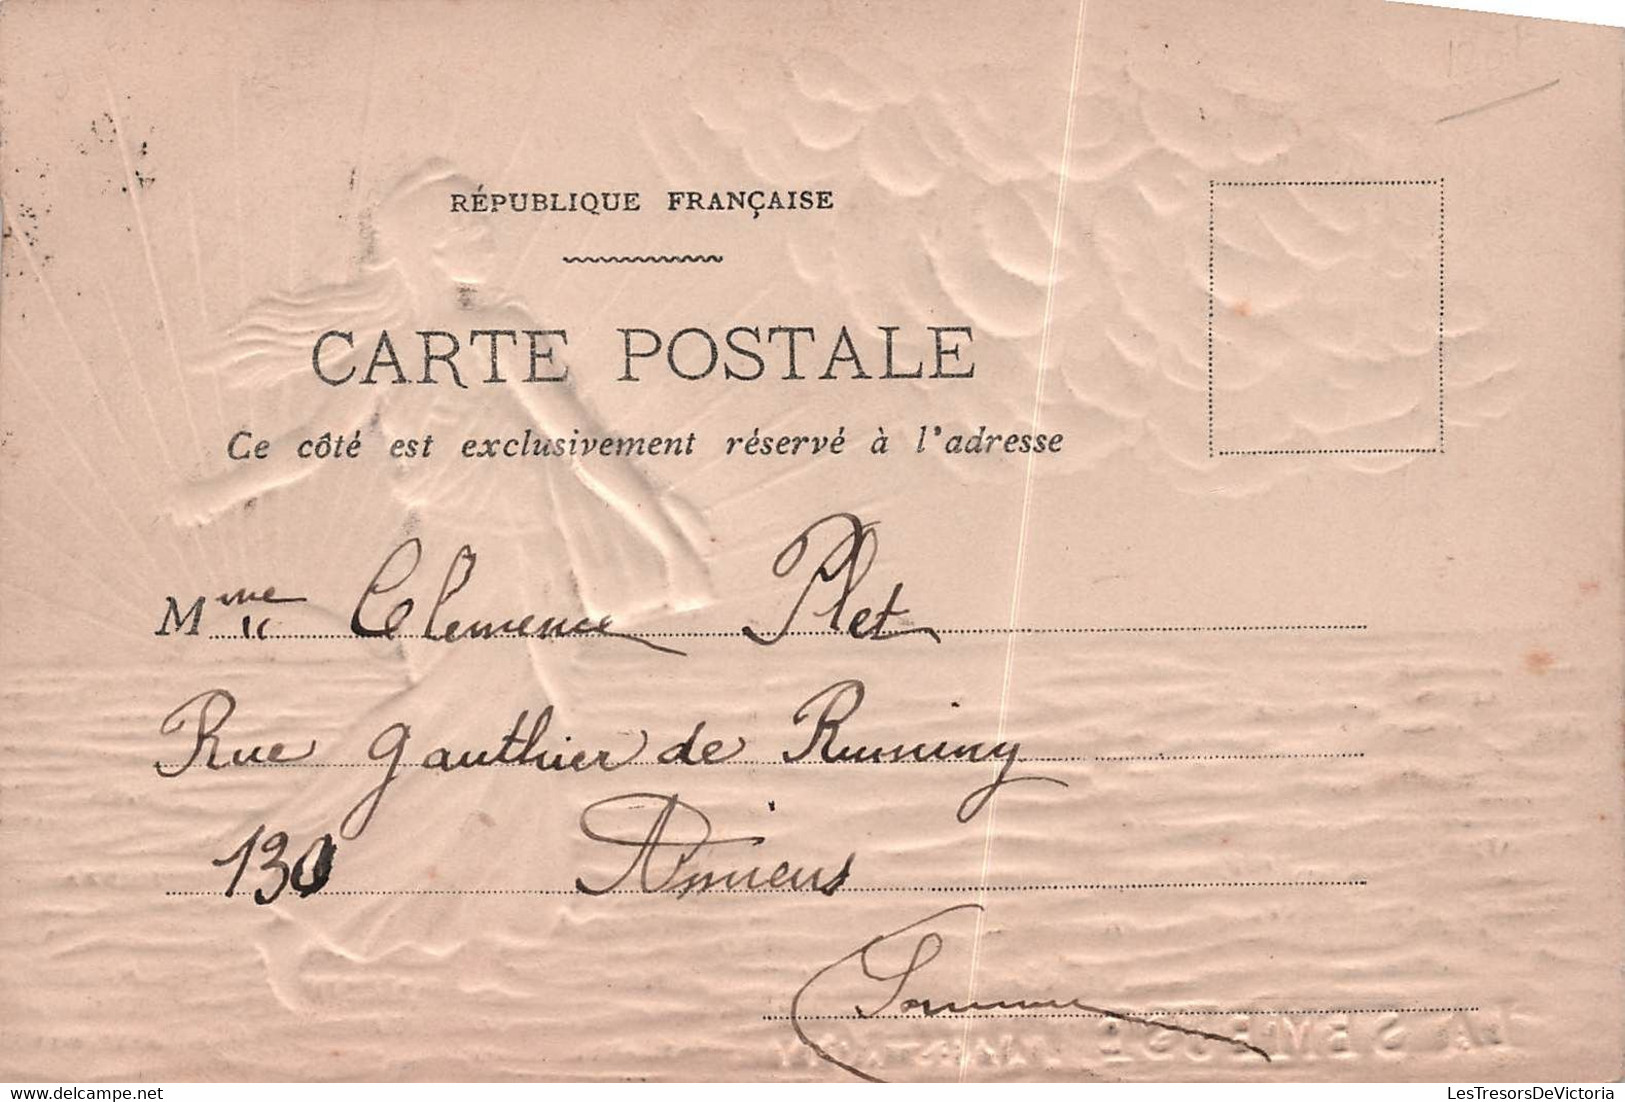 RÉPUBLIQUE FRANÇAISE
CARTE POSTALE
Ce côté est exclusivement réservé à l'adresse
Mme Clemence Plet
Rue Gauthier de Ruminy
130 Amiens
Somme
LA SEMEUSE
LesTresorsDeVictoria